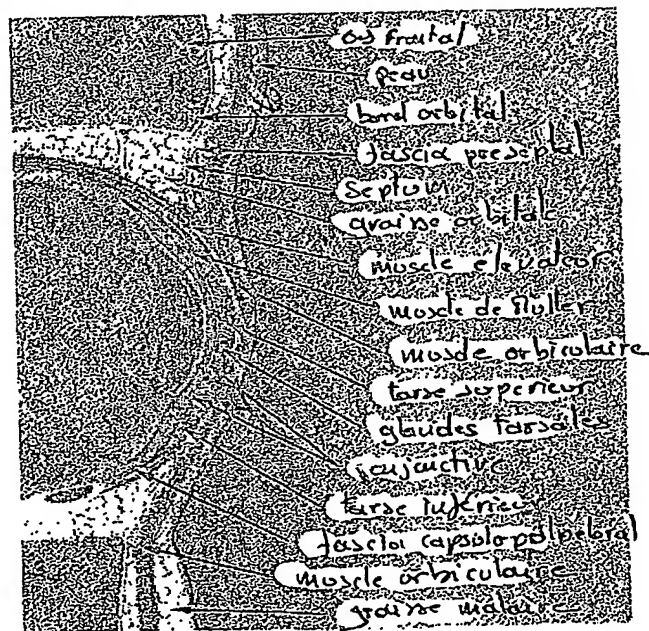 os frontal
peau
bord orbital
fascia preseptal
septum
graisse orbitale
muscle élévateur
muscle de Müller
muscle orbiculaire
tarse superieur
glandes tarsales
conjonctive
tarse inférieur
fascia capsulopalpebral
muscle orbiculaire
graisse malaire